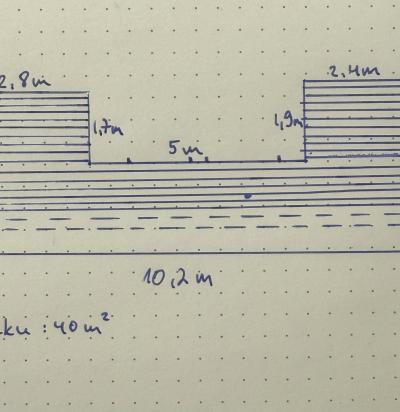 2,8m
2,4m
1,7m
1,9m
5m
10,2 m
ku : 40 m²